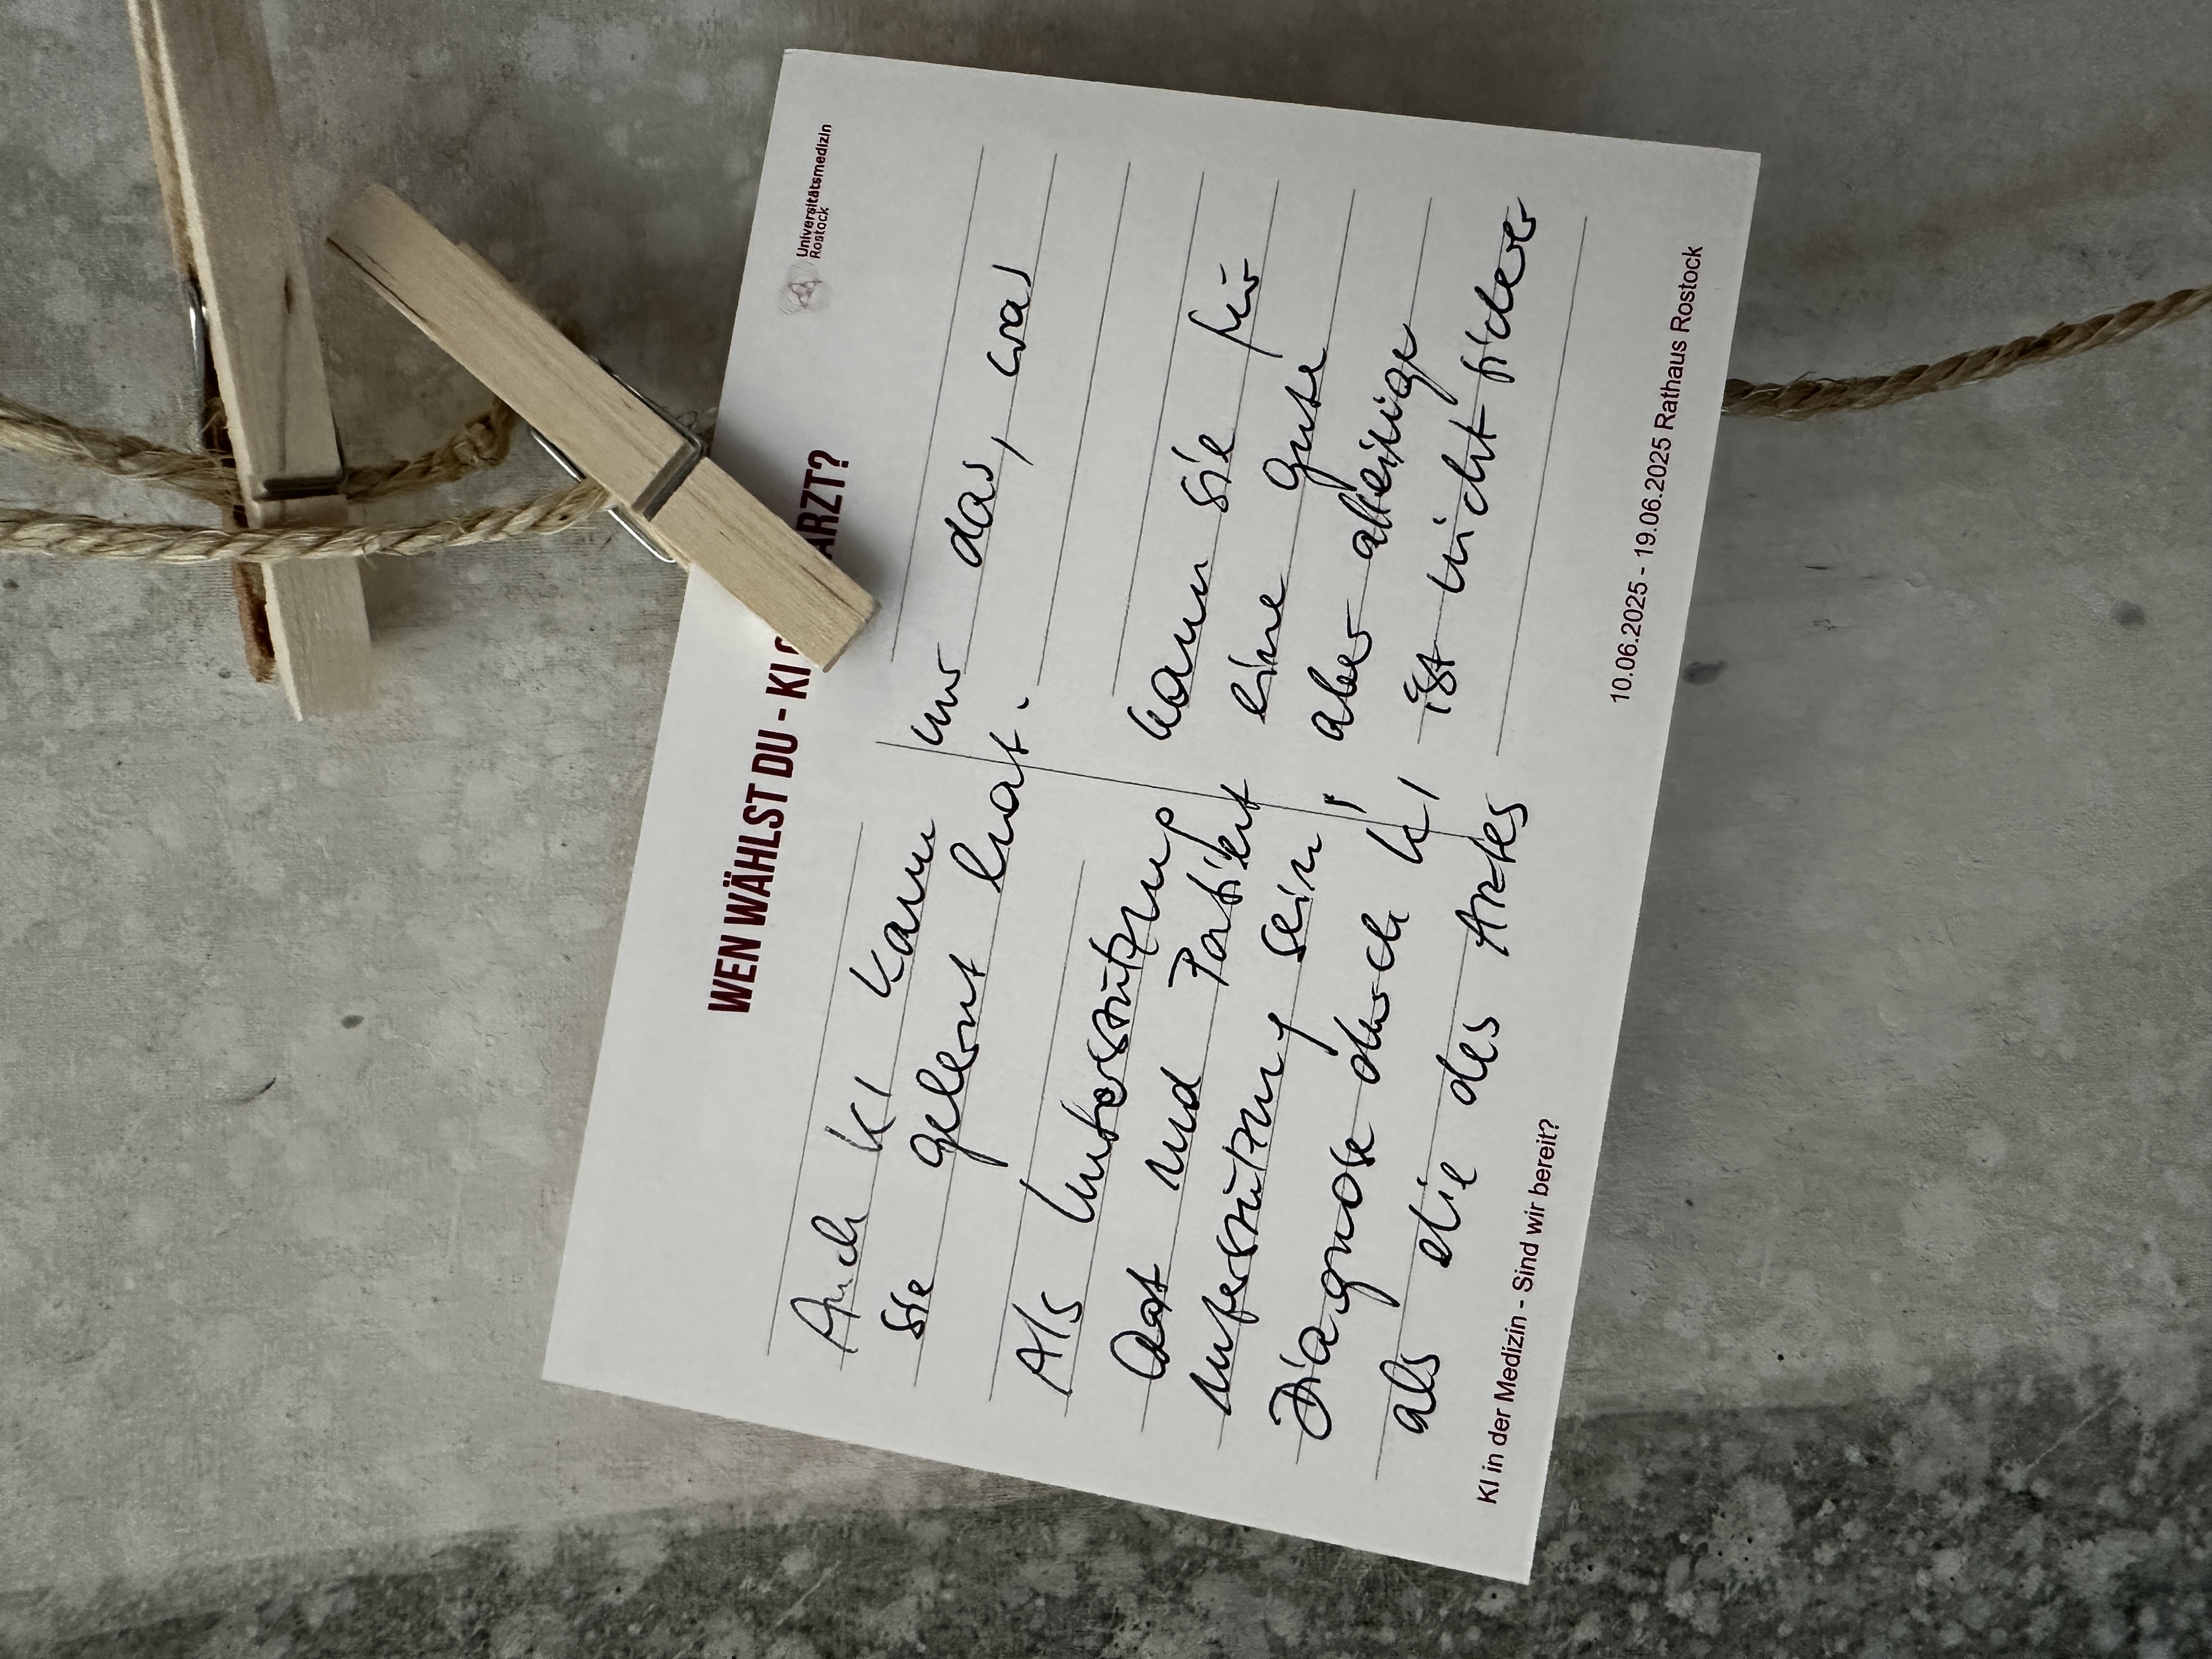 Universitätsmedizin
Rostock
WEN WÄHLST DU - KI ARZT?
Auch KI kann nur das, was
sie gelernt hat.
Als Unterstützung kann sie für
Arzt und Patient eine gute
Unterstützung sein, aber alleinige
Diagnose durch KI, ist nicht sicher
als die des Arztes
KI in der Medizin - Sind wir bereit?
10.06.2025 - 19.06.2025 Rathaus Rostock